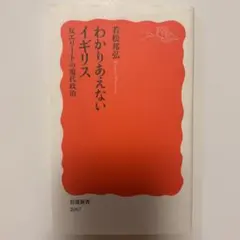 若松邦弘
わかりあえない
イギリス
反エリートの現代政治
岩波新書
2067